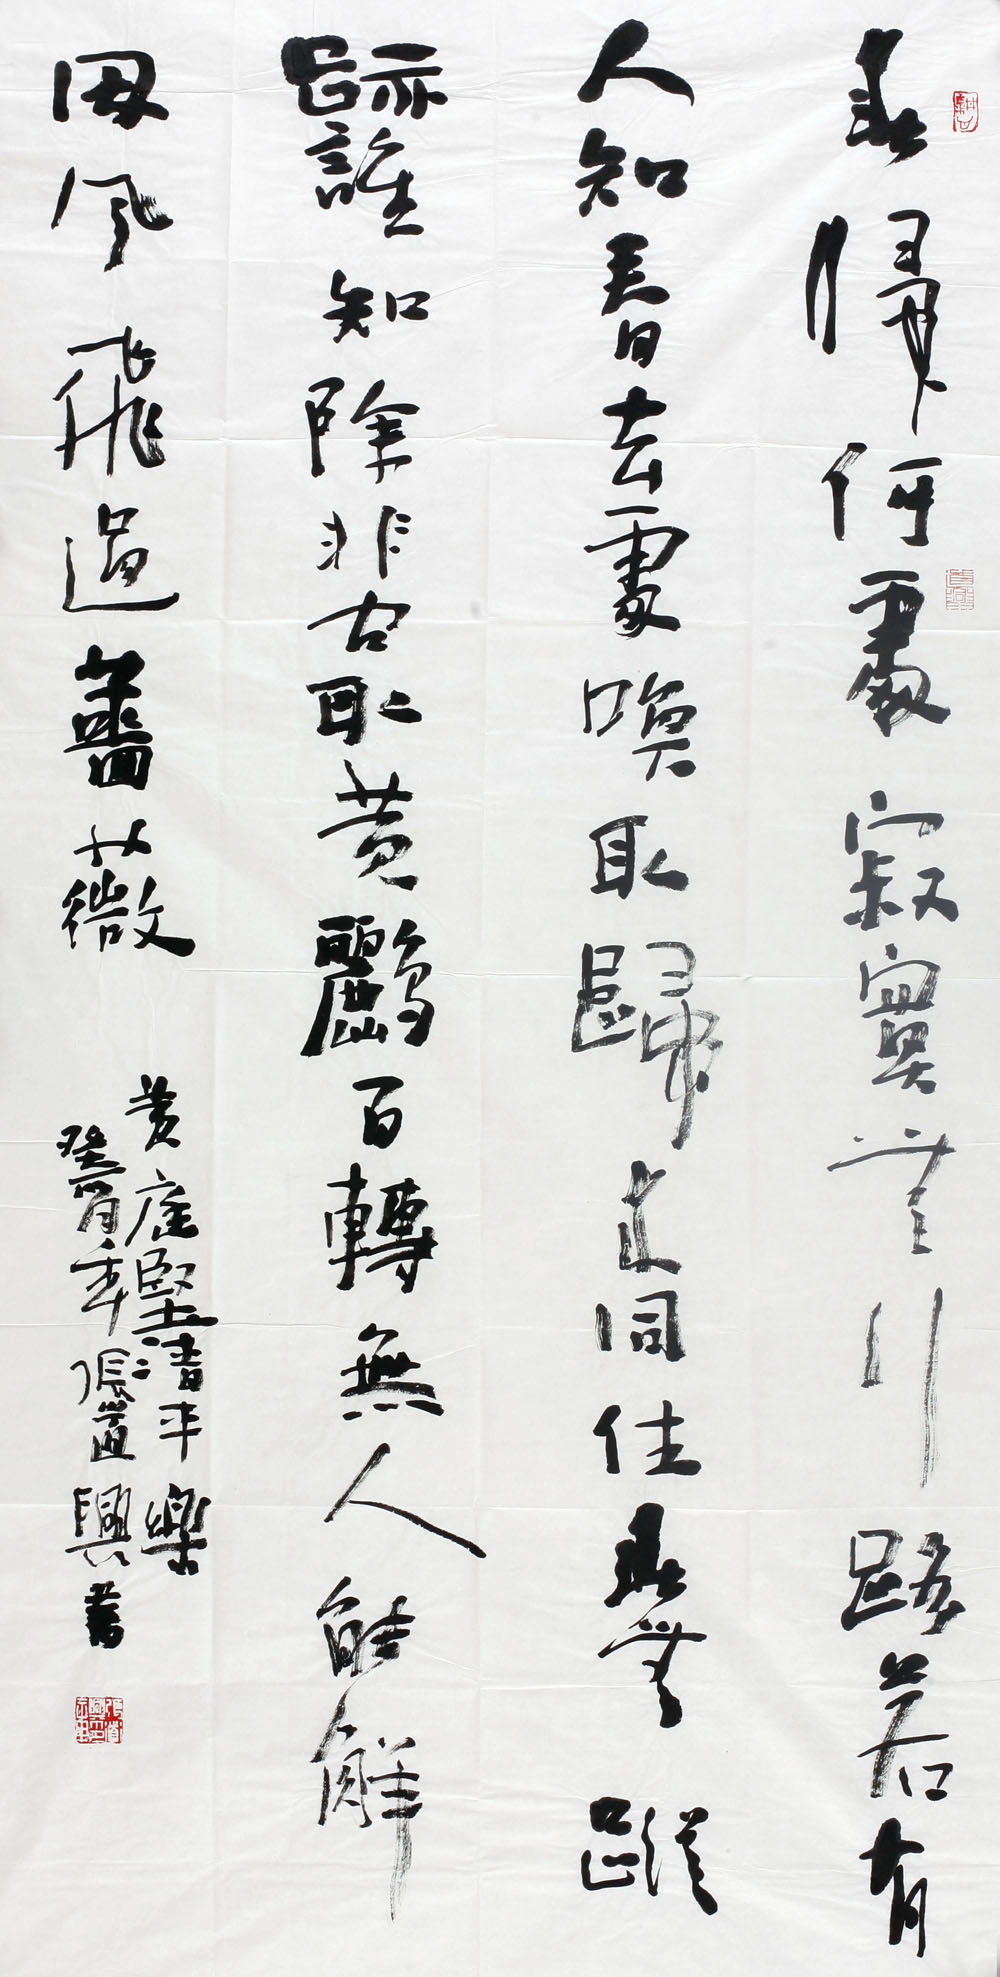 春歸何處寂寞無行路若有
人知春去處喚取歸來同住春無蹤
跡誰知除非問取黃鸝百轉無人能解
因風飛過薔薇
黃庭堅清平樂
癸年張道興書